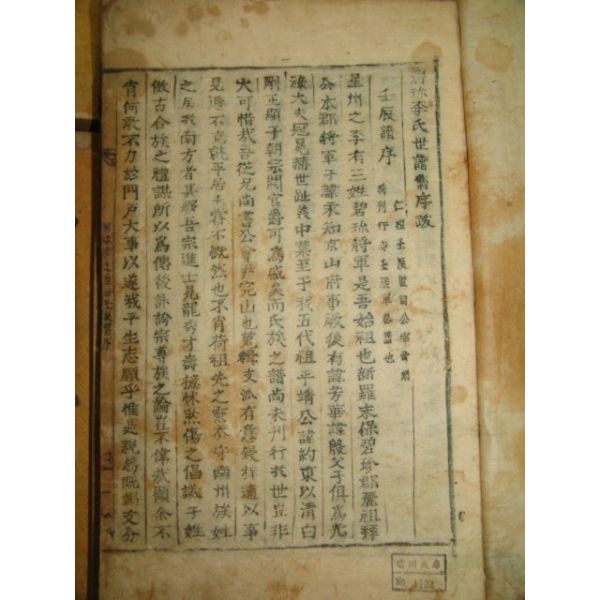 碧珍李氏世譜舊序跋
壬辰譜序
星州之李有三姓碧珍將軍是吾始祖也新羅末保碧珍郡麗祖拜
公本郡將軍子諱永知京山府事厥後有諱芳華諱殷父子俱爲光
祿大夫冠冕繡世趾義中葉至于我五代祖平靖公諱約東以清白
剛正顯于朝宗閥官爵可爲盛矣而氏族之譜尚未刊行於世豈非
大可惜哉吾從兄尚書公曾尹完山也蒐輯支派有意鋟梓適以事
見遞不克就平居未嘗不慨然也不肖荷祖先之 守 州族姓
之居於南方者甚 吾宗進士 龍秀才壽 怵然傷之倡議子姓
倣古合族之禮謀所以爲傳後 宗尊族之論豈不偉哉顧余不
肖何敢不力於門戶大事以遂我平生志願乎惟是親爲 支分
No. 1122